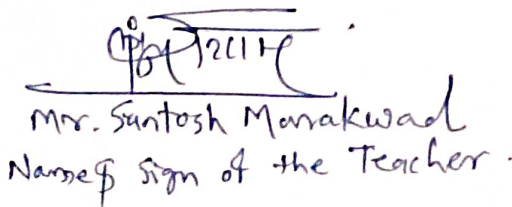 Mr. Santosh Marakwad
Name & Sign of the Teacher.